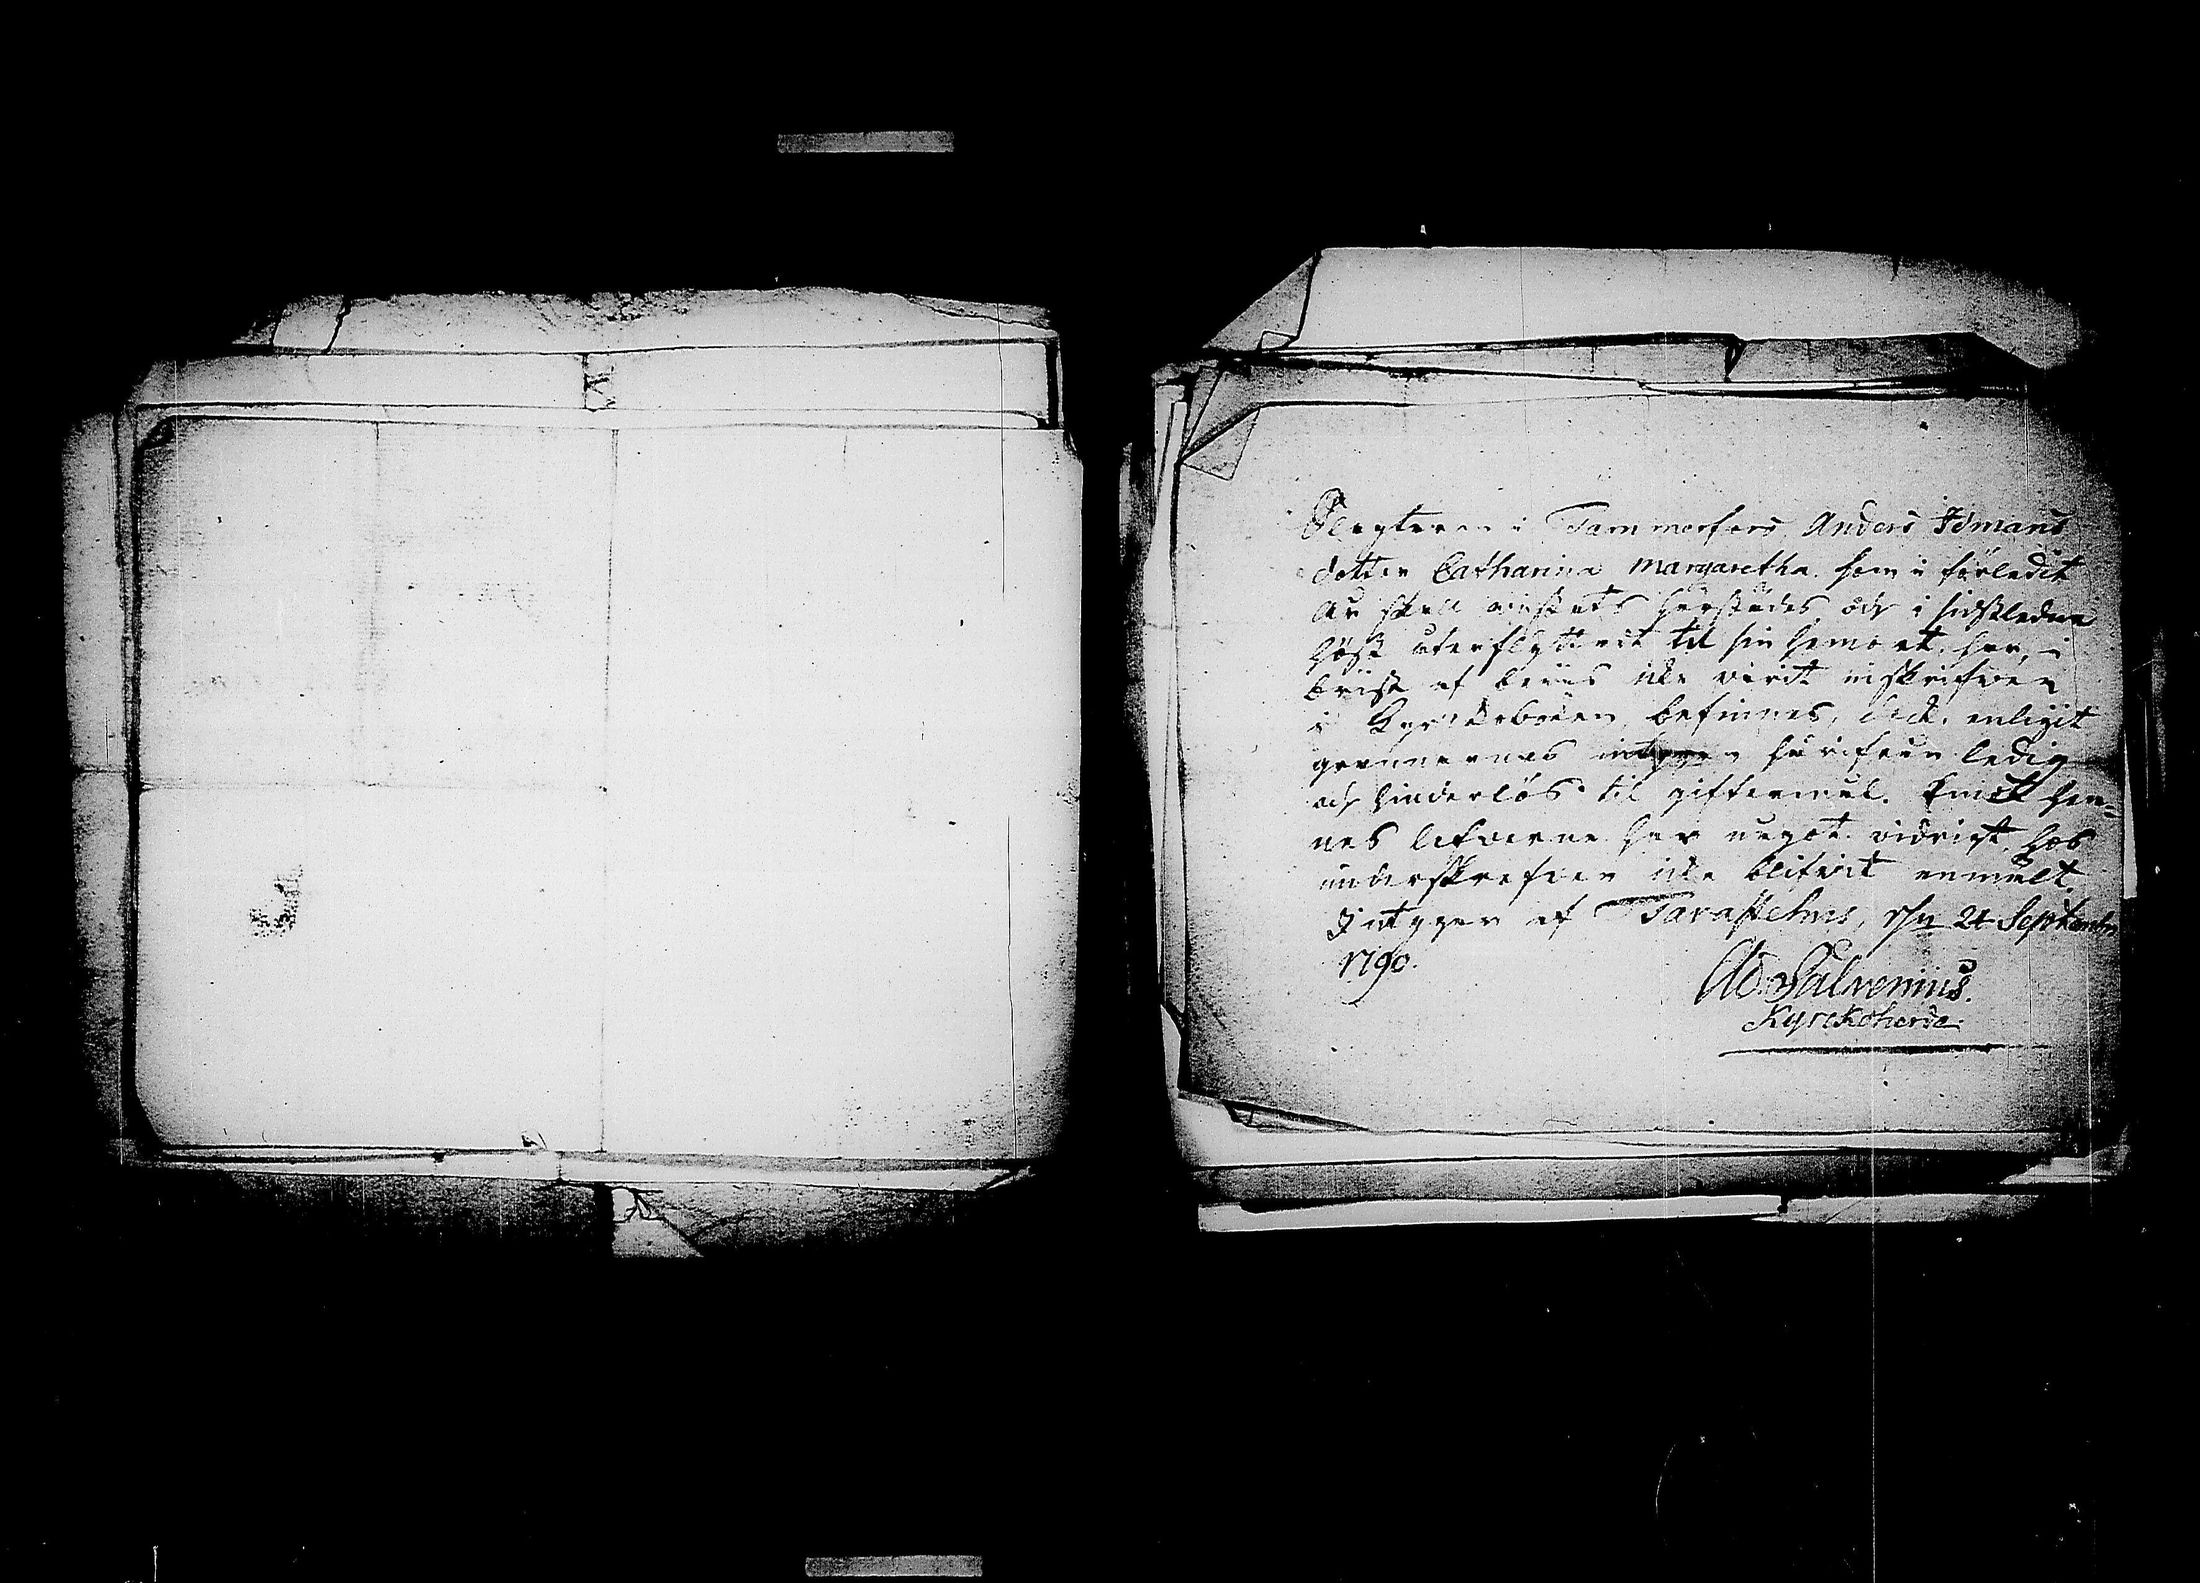 i Tammerfors Anders Idmans
dotter Catharina Margaretha, som i förledit
År skall vistats härstädes och i sidstledne
höst återflyttadt til sin hemort, har, i
brist af bevis icke varit inskrifven
i Kyrckoboken, befinnes, dock, enligit
grannarnas intygan härifrån ledig
och hinderlös til giftermål. Emot hen=
nes lefverne har något vidrigt, hos
underskrefven icke blifvit anmält.
Intygar af Tavastehus, den 24 Septembr
1790.
Ad. Salvenius.
Kyrckoherde.